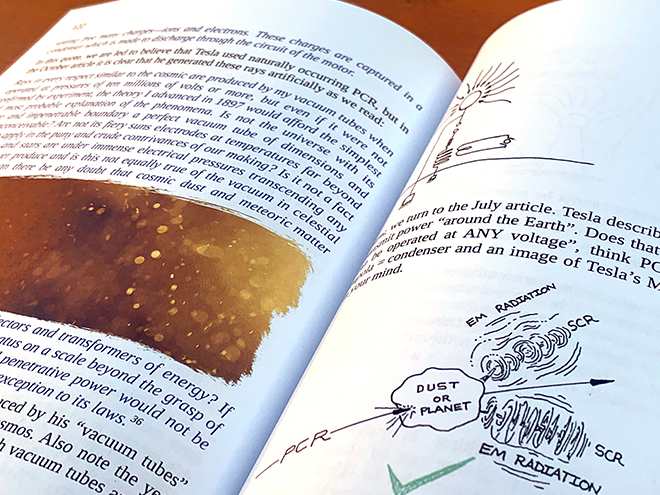 more charges—ions and electrons. These charges are captured in a
condenser which is made to discharge through the circuit of the motor.
In this quote, we are led to believe that Tesla used naturally occurring PCR, but in
the October article it is clear that he generated these rays artificially as we read.
Rays in every respect similar to the cosmic are produced by my vacuum tubes when
operated at pressures of ten millions of volts or more, but even if it were not
confirmed by experiment, the theory I advanced in 1897 would afford the simplest
and most probable explanation of the phenomena. Is not the universe with its
and impenetrable boundary a perfect vacuum tube of dimensions and
conceivable? Are not its fiery suns electrodes at temperatures far beyond
apply in the puny and crude contrivances of our making? Is it not a fact
and stars are under immense electrical pressures transcending any
er produce and is this not equally true of the vacuum in celestial
an there be any doubt that cosmic dust and meteoric matter
ectors and transformers of energy? If
atus on a scale beyond the grasp of
penetrative power would not be
exception to its laws. 36
uced by his “vacuum tubes”
smos. Also note the ye
h vacuum tubes a
we turn to the July article. Tesla describ
smit power “around the Earth”. Does that
be operated at ANY voltage”, think PC
ola = condenser and an image of Tesla’s M
your mind.
EM RADIATION
SCR
DUST
OR
PLANET
PCR
SCR
EM RADIATION